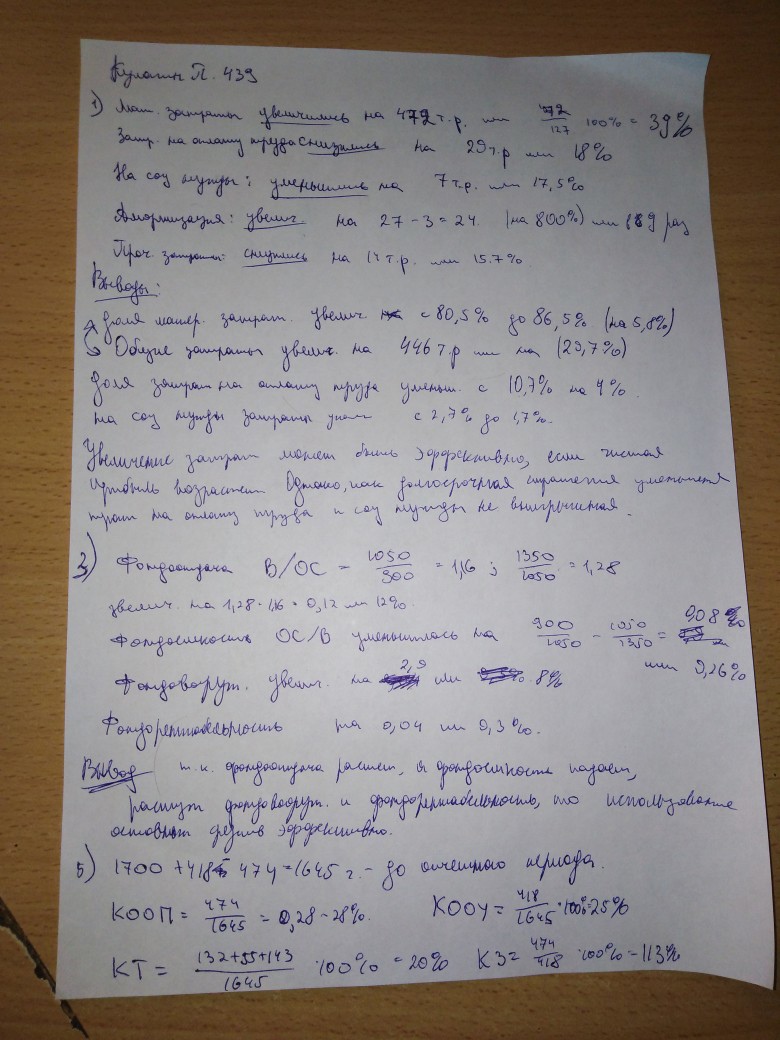 Кулагин П. 439
1) Мат. затраты увеличились на 472 т.р. или 472/127 100% = 39%
Затр. на оплату труда снизились на 29 т.р или 18%
На соц нужды: уменьшились на 7 т.р. или 17,5%
Амортизация: увелич. на 27-3=24. (на 800%) или в 9 раз
Проч. затраты: снизились на 14 т.р. или 15.7%.
Выводы:
Доля матер. затрат. увелич. с 80,5% до 86,5% (на 5,8%)
Общие затраты увелич. на 446 т.р или на (29,7%)
Доля затрат на оплату труда уменьш. с 10,7% на 4%.
на соц нужды затраты с 2,7% до 1,7%.
Увеличение затрат может быть эффективно, если чистая
прибыль возрастет. Однако, как долгосрочная стратегия уменьшение
трат на оплату труда и соц нужды не выигрышная.
3) Фондоотдача В/ОС = 1050/900 = 1,16 ; 1350/1050 = 1,28
увелич. на 1,28-1,16=0,12 или 12%.
Фондоемкость ОС/В уменьшилось на 900/1050 - 1050/1350 = 0,08 %
или 9,26%
Фондовооруж. увелич. на 2,9 или 8%
Фондорентабельность на 0,04 или 0,3%.
Вывод т.к. фондоотдача растет, а фондоемкость падает,
растут фондовооруж. и фондорентабельность, то использование
основных средств эффективно.
5) 1700 + 418 - 474 = 1645 г. - до отчетного периода.
КООП = 474/1645 = 0,28 - 28%. КООУ = 418/1645 · 100% = 25%
КТ = 132+55+143/1645 · 100% = 20% КЗ = 474/418 · 100% = 113%